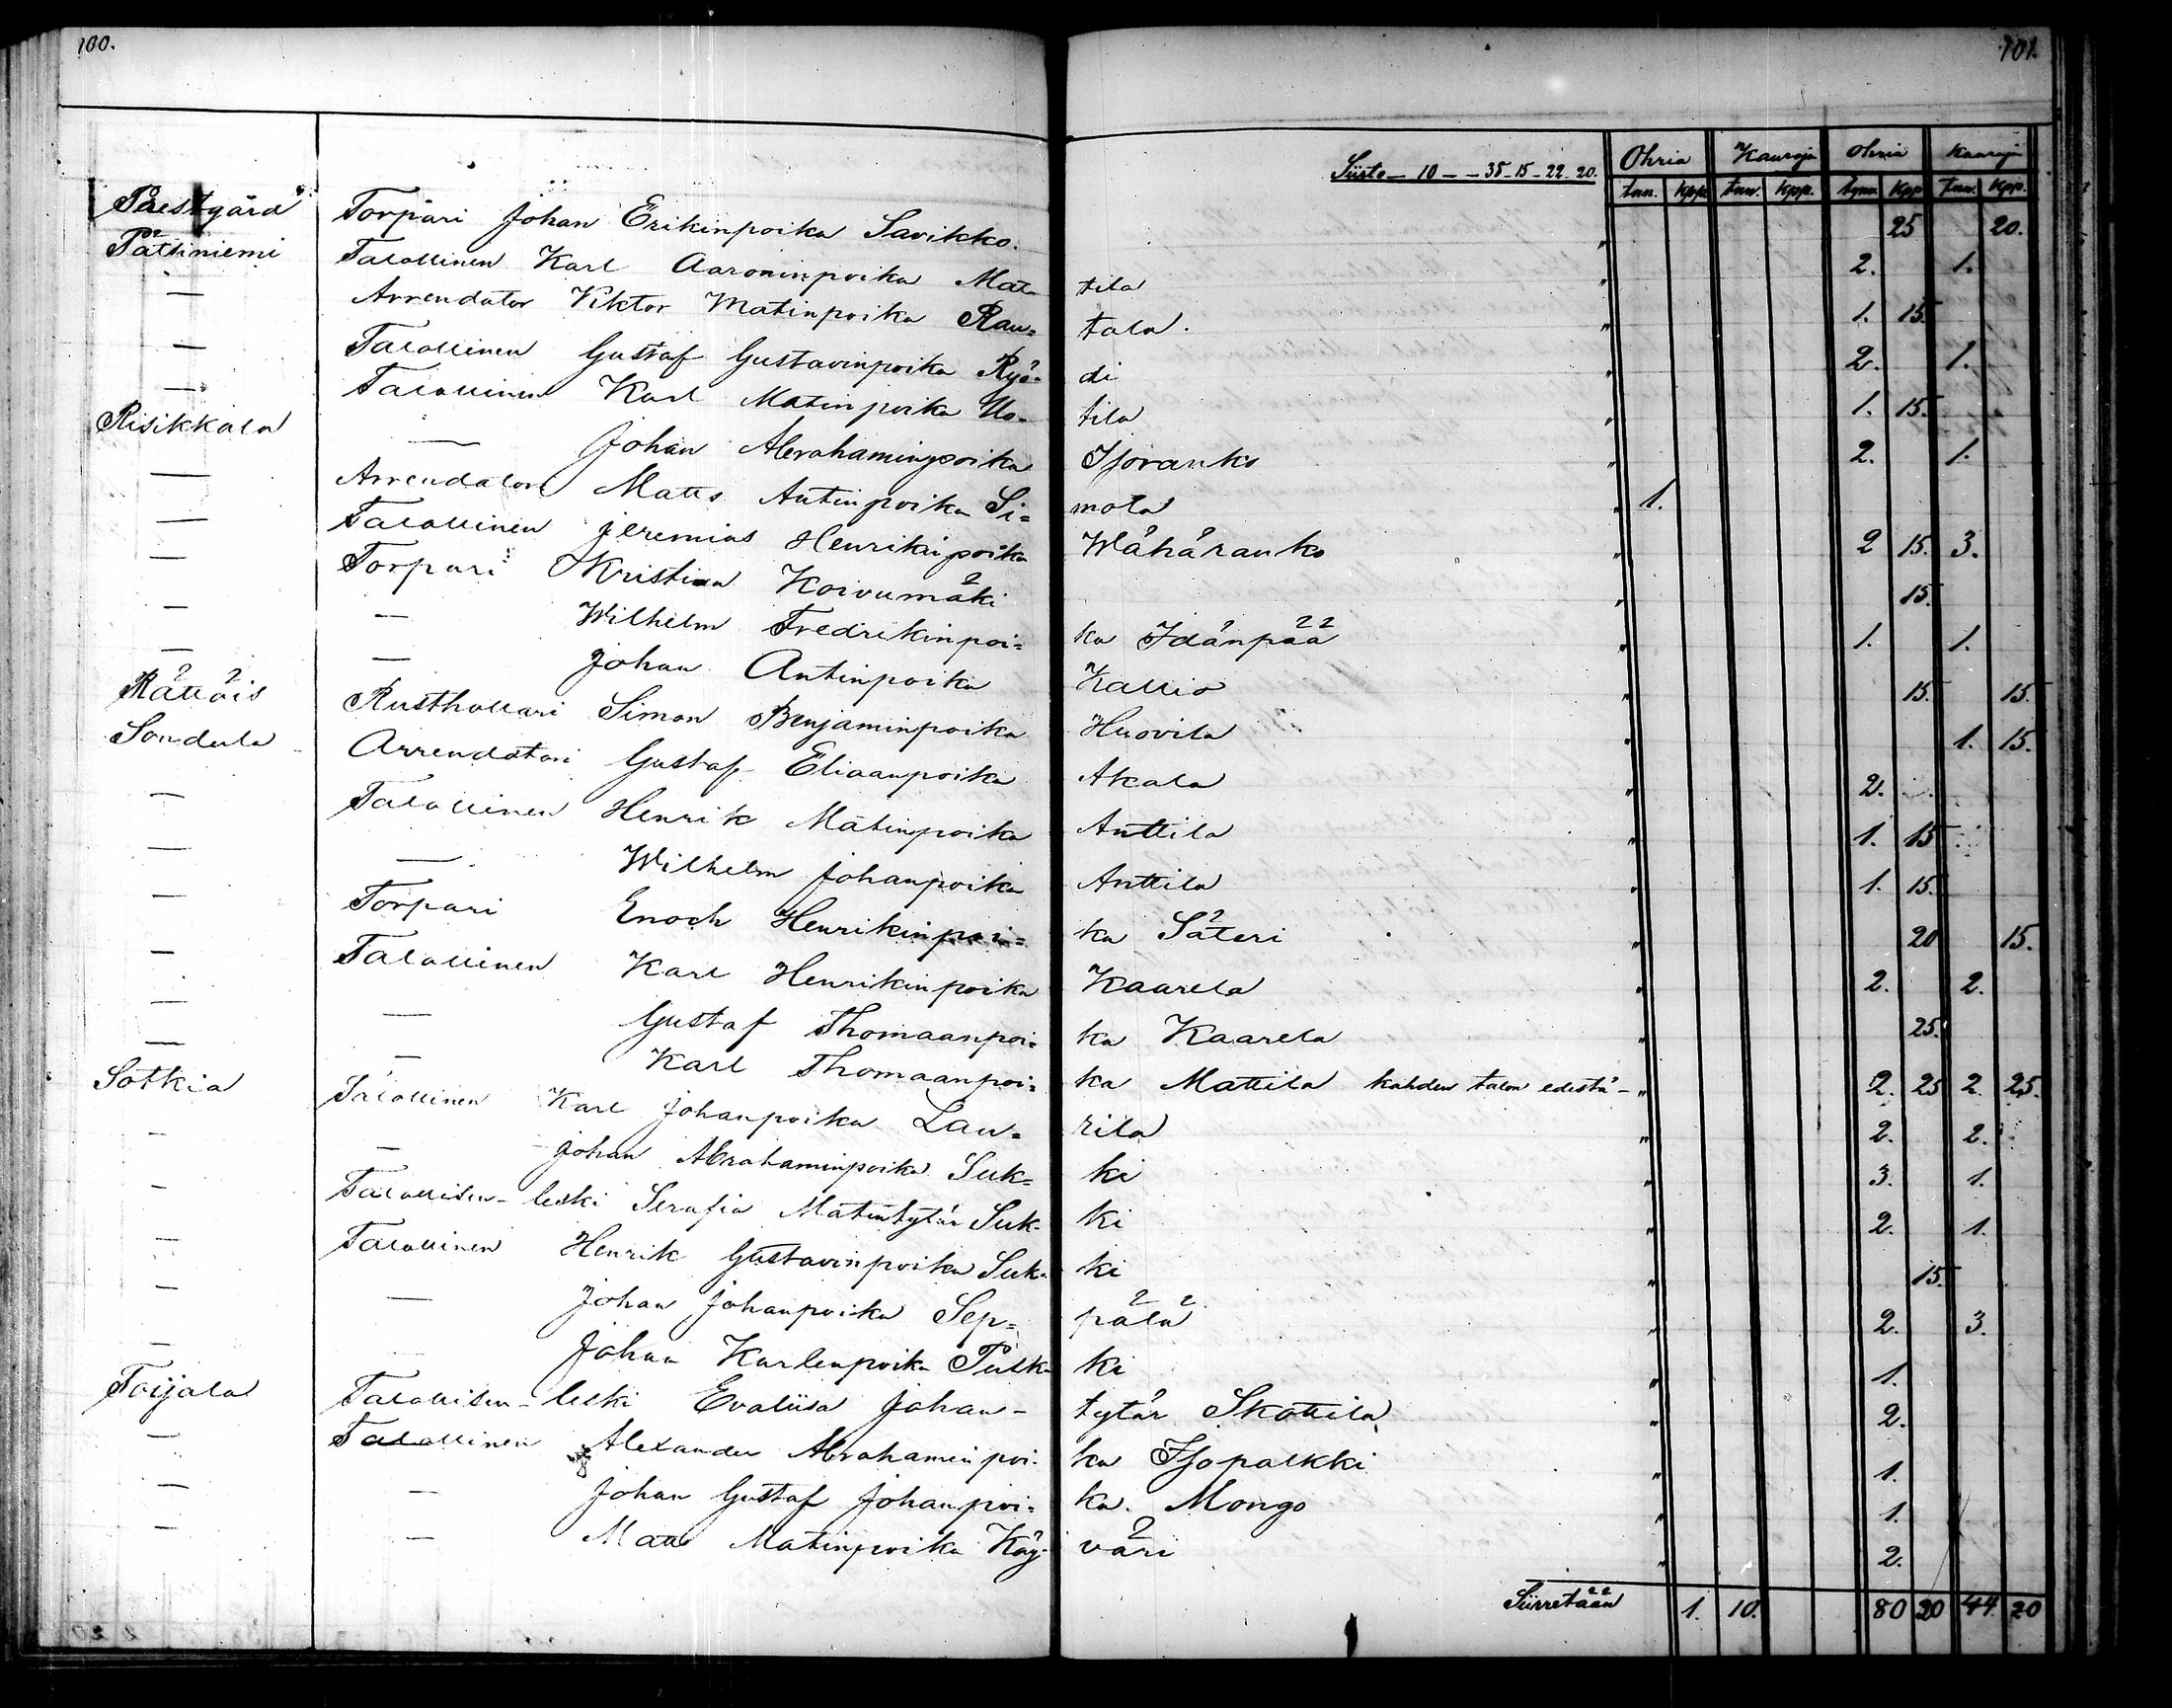 100.
101.
Siirto - 10 - - 35 - 15 - 22 - 20.
Ohria Kauroja Ohria Kauroja
tun. kpp. tun. kpp. tynn. kpp. tun. kpp.
Prestgård Torpari Johan Erikinpoika Savikko. " 25 20.
Pätsiniemi Talollinen Karl Aaroninpoika Mat- tila " 2. 1.
— Arrendator Viktor Matinpoika Rau= tala. " 1. 15.
— Talollinen Gustaf Gustavinpoika Ryö- di " 2. 1.
— Talollinen Karl Matinpoika Uo- tila " 1. 15.
Risikkala — Johan Abrahaminpoika Isoranko " 2. 1.
— Arrendatori Matts Antinpoika Si= mola " 1.
— Talollinen Jeremias Henrikinpoika Wähäranko " 2 15. 3.
— Torpari Kristina Koivumäki " 15.
— — Wilhelm Fredrikinpoi= ka Idänpää 1. 1.
— — Johan Antinpoika Kallio " 15. 15.
Rättöis Rusthollari Simon Benjaminpoika Huovila " 1. 15.
Sondula Arrendatori Gustaf Eliaanpoika Akala " 2.
— Talollinen Henrik Matinpoika Anttila " 1. 15
— — Wilhelm Johanpoika Anttila " 1. 15.
— Torpari Enoch Henrikinpoi= ka Säteri " 20 15.
— Talollinen Karl Henrikinpoika Kaarela " 2. 2.
— — Gustaf Thomaanpoi= ka Kaarela " 25.
— — Karl Thomaanpoi= ka Mattila kahden talon edestä - " 2. 25 2. 25.
Sotkia Talollinen Karl Johanpoika Lau= rila " 2. 2.
— — Johan Abrahaminpoika Suk= ki " 3. 1.
— Talollisen- leski Serafia Matintytär Suk- ki " 2. 1.
— Talollinen Henrik Gustavinpoika Suk- ki " 15.
— — Johan Johanpoika Sep= pälä " 2. 3.
— Johan Karlenpoika Pusk- ki " 1.
Toijala Talollisen- leski Evaliisa Johan- tytär Skottila " 2.
— Talollinen Alexander Abrahaminpoi- ka Isopalkki " 1.
— — Johan Gustaf Johanpoi= ka. Mongo " 1.
— — Matts Matinpoika Käy- väri " 2.
Siirretään 1. 10. 80 20 44. 20